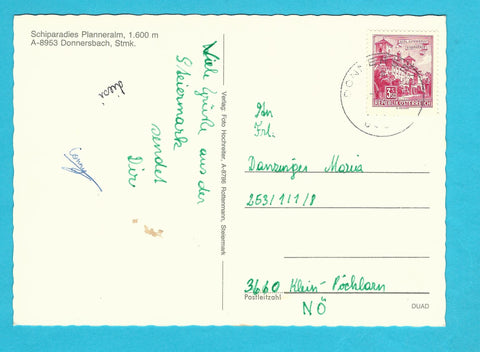 Schiparadies Planneralm, 1.600 m
A-8953 Donnersbach, Stmk.
Viele Grüße aus der
Steiermark
sendet
Dir
Verlag: Foto Hochreiter, A-8786 Rottenmann, Steiermark
An
Frl.
Danzinger Maria
253/1/1/8
3660 Klein-Pöchlarn
Postleitzahl
NÖ
DUAD
REPUBLIK ÖSTERREICH